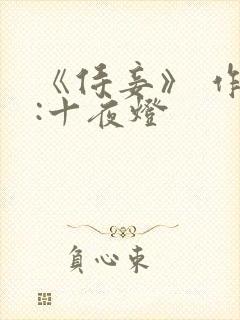 《侍妾》 作
:十夜燈
負心束